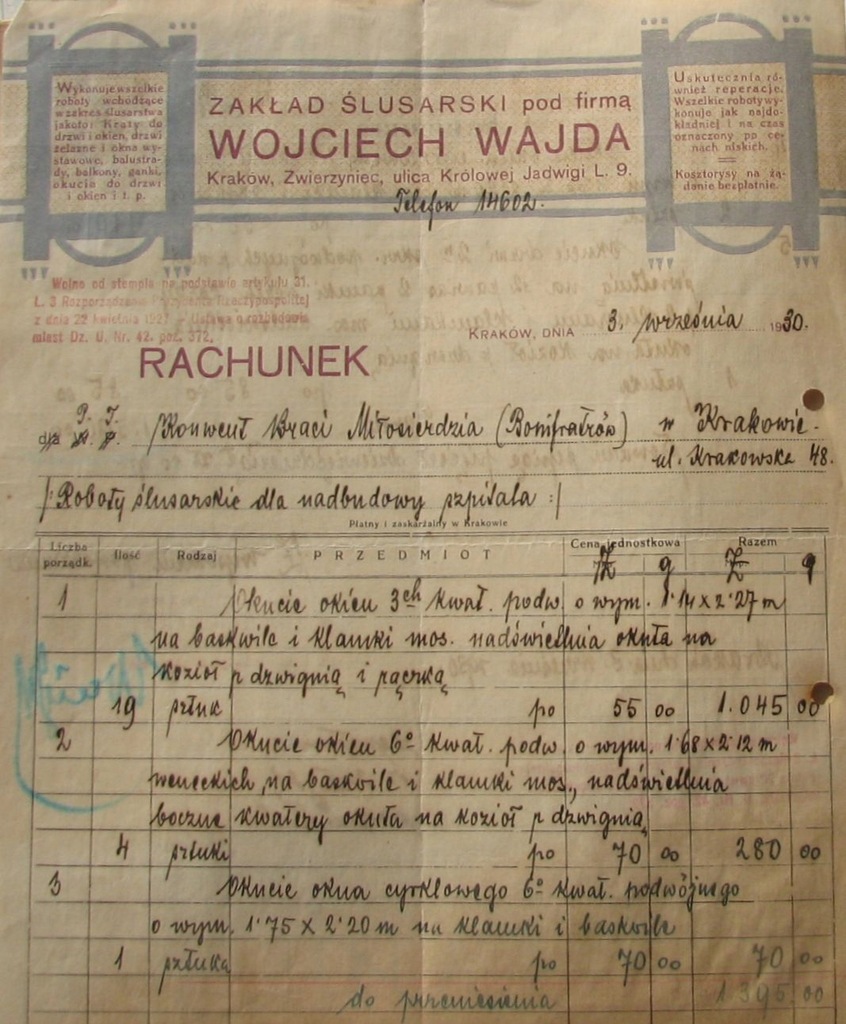 Wykonuje wszelkie
roboty wchodzące
w zakres ślusarstwa
jakoto: Kraty do
drzwi i okien, drzwi
żelazne i okna wy-
stawowe, balustra-
dy, balkony, ganki,
okucia do drzwi
i okien i t. p.
ZAKŁAD ŚLUSARSKI pod firmą
WOJCIECH WAJDA
Kraków, Zwierzyniec, ulica Królowej Jadwigi L. 9.
Telefon 14602.
Uskutecznia ró-
wnież reperacje.
Wszelkie roboty wy-
konuje jak najdo-
kładniej i na czas
oznaczony po ce-
nach niskich.
Kosztorysy na żą-
danie bezpłatnie.
Wolne od stempla na podstawie artykułu 31.
L. 3 Rozporządzenia Prezydenta Rzeczypospolitej
z dnia 22 kwietnia 1927 - Ustawa o rozbudowie
miast Dz. U. Nr. 42. poz. 372.
KRAKÓW, DNIA 3. września 1930.
RACHUNEK
P. T.
dla Konwent Braci Miłosierdzia (Bonifratrów) w Krakowie.
ul. Krakowska 48.
/: Roboty ślusarskie dla nadbudowy szpitala :/
Płatny i zaskarżalny w Krakowie
Liczba porządk. Ilość Rodzaj PRZEDMIOT Cena jednostkowa Razem
Zł g Zł g
1 Okucie okien 3ch kwat. podw. o wym. 1·14 x 2·27 m
na baskwile i klamki mos. nadświetlnia okuta na
kozioł z dzwignią i rączką
19 sztuk po 55 00 1.045 00
2 Okucie okien 6º kwat. podw. o wym. 1·68 x 2·12 m
weneckich, na baskwile i klamki mos., nadświetlnia
boczne kwatery okuta na kozioł z dzwignią
4 sztuki po 70 00 280 00
3 Okucie okna cyrklowego 6º kwat. podwójnego
o wym. 1·75 x 2·20 m na klamki i baskwile
1 sztuka po 70 00 70 00
do przeniesienia 1.395 00